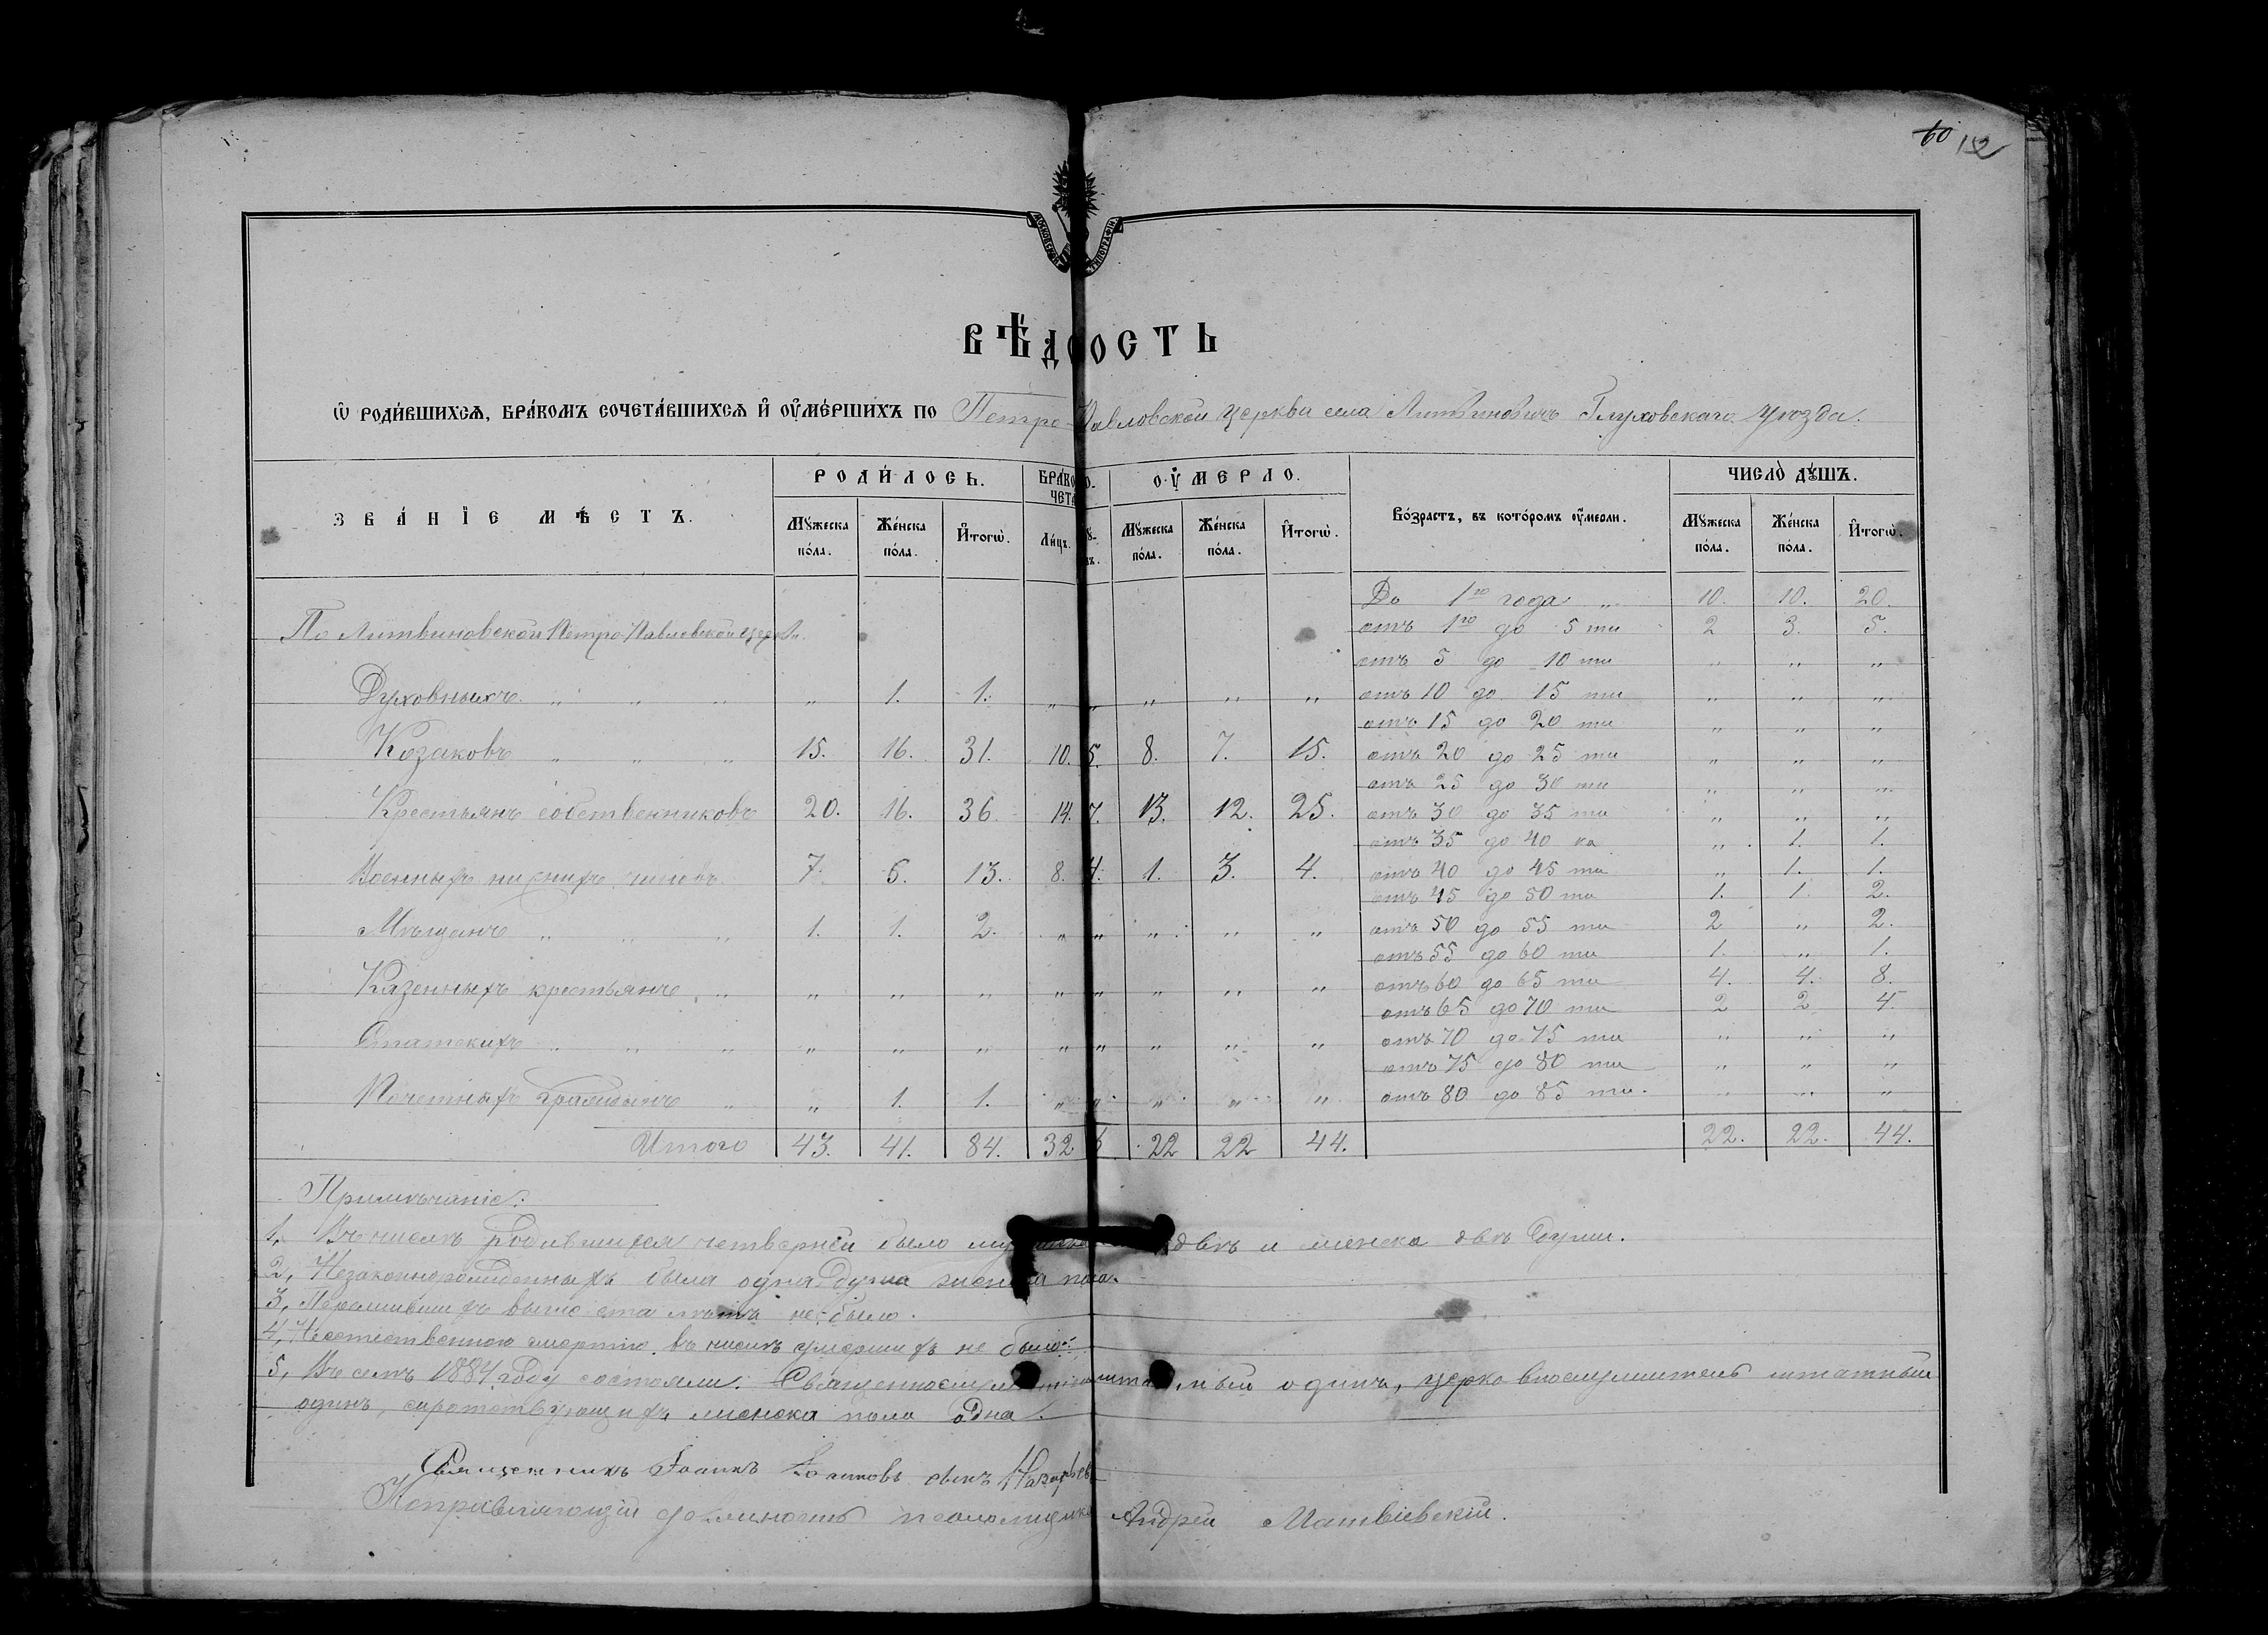 60 152
МОСКОВСКОЙ ТИПОГРАФІИ
ВѢДОМОСТЬ
Ѡ РОДИ́ВШИХСѦ, БРА́КОМЪ СОЧЕТА́ВШИХСѦ И҆ ОУ҆МЕ́РШИХЪ ПО Петро-Павловской церкви села Литвиновичъ Глуховскаго уѣзда.
ЗВА́НІЕ МѢСТЪ. РОДИ́ЛОСЬ. БРАКО ЧЕТА ОУ҆МЕРЛО. Во́зрастъ, въ кото́ромъ оу҆мерли. ЧИСЛО̀ ДꙊ́ШЪ.
Мꙋ́жеска по́ла. Же́нска по́ла. И҆тогѡ̀. Ли́цъ. Мꙋ́жеска по́ла. Же́нска по́ла. И҆тогѡ̀. Мꙋ́жеска по́ла. Же́нска по́ла. И҆тогѡ̀.
До 1го года „ 10. 10. 20.
По Литвиновской Петро-Павловской церкви.
отъ 1го до 5 ти 2 3. 5.
отъ 5 до 10 ти „ „ „
Духовныхъ. „ „ „ „ 1. 1. „ „ „ „ „ отъ 10 до 15 ти „ „ „
отъ 15 до 20 ти „ „ „
Козаковъ „ „ „ 15. 16. 31. 10. 5. 8. 7. 15. отъ 20 до 25 ти „ „ „
отъ 25 до 30 ти „ „ „
Крестьянъ собственниковъ 20. 16. 36. 14. 7. 13. 12. 25. отъ 30 до 35 ти „ „ „
отъ 35 до 40 ка „ 1. 1.
Военныхъ нижнихъ чиновъ 7. 6. 13. 8. 4. 1. 3. 4. отъ 40 до 45 ти „ 1. 1.
отъ 45 до 50 ти 1. 1. 2.
Мѣщанъ „ „ „ 1. 1. 2. „ „ „ „ „ отъ 50 до 55 ти 2 „ 2.
отъ 55 до 60 ти 1. „ 1.
Казенныхъ крестьянъ „ „ „ „ „ „ „ „ „ отъ 60 до 65 ти 4. 4. 8.
отъ 65 до 70 ти 2 2 4
Статскихъ „ „ „ „ „ „ „ „ „ „ „ отъ 70 до 75 ти „ „ „
отъ 75 до 80 ти „ „ „
Почетныхъ гражданъ „ „ 1. 1. „ „ „ „ „ отъ 80 до 85 ти. „ „ „
Итого 43. 41. 84. 32 6 22 22 44. 22. 22. 44.
Примѣчаніе.
1, Въ числѣ родившихся четверней было двѣ и женска двѣ души.
2, Незаконнорожденныхъ была одна душа женска пола.
3, Пережившихъ выше ста лѣтъ не было.
4, Неестественною смертію въ числѣ умершихъ не было.
5, Въ семъ 1884 году состояли: Священнослужитель штатный одинъ, церковнослужитель штатный
одинъ, сиротствующихъ женска пола одна.
Священникъ Іоаннъ Іоанновъ сынъ Назарьевъ
Исправляющій должность псаломщика Андрей Матвіевскій.